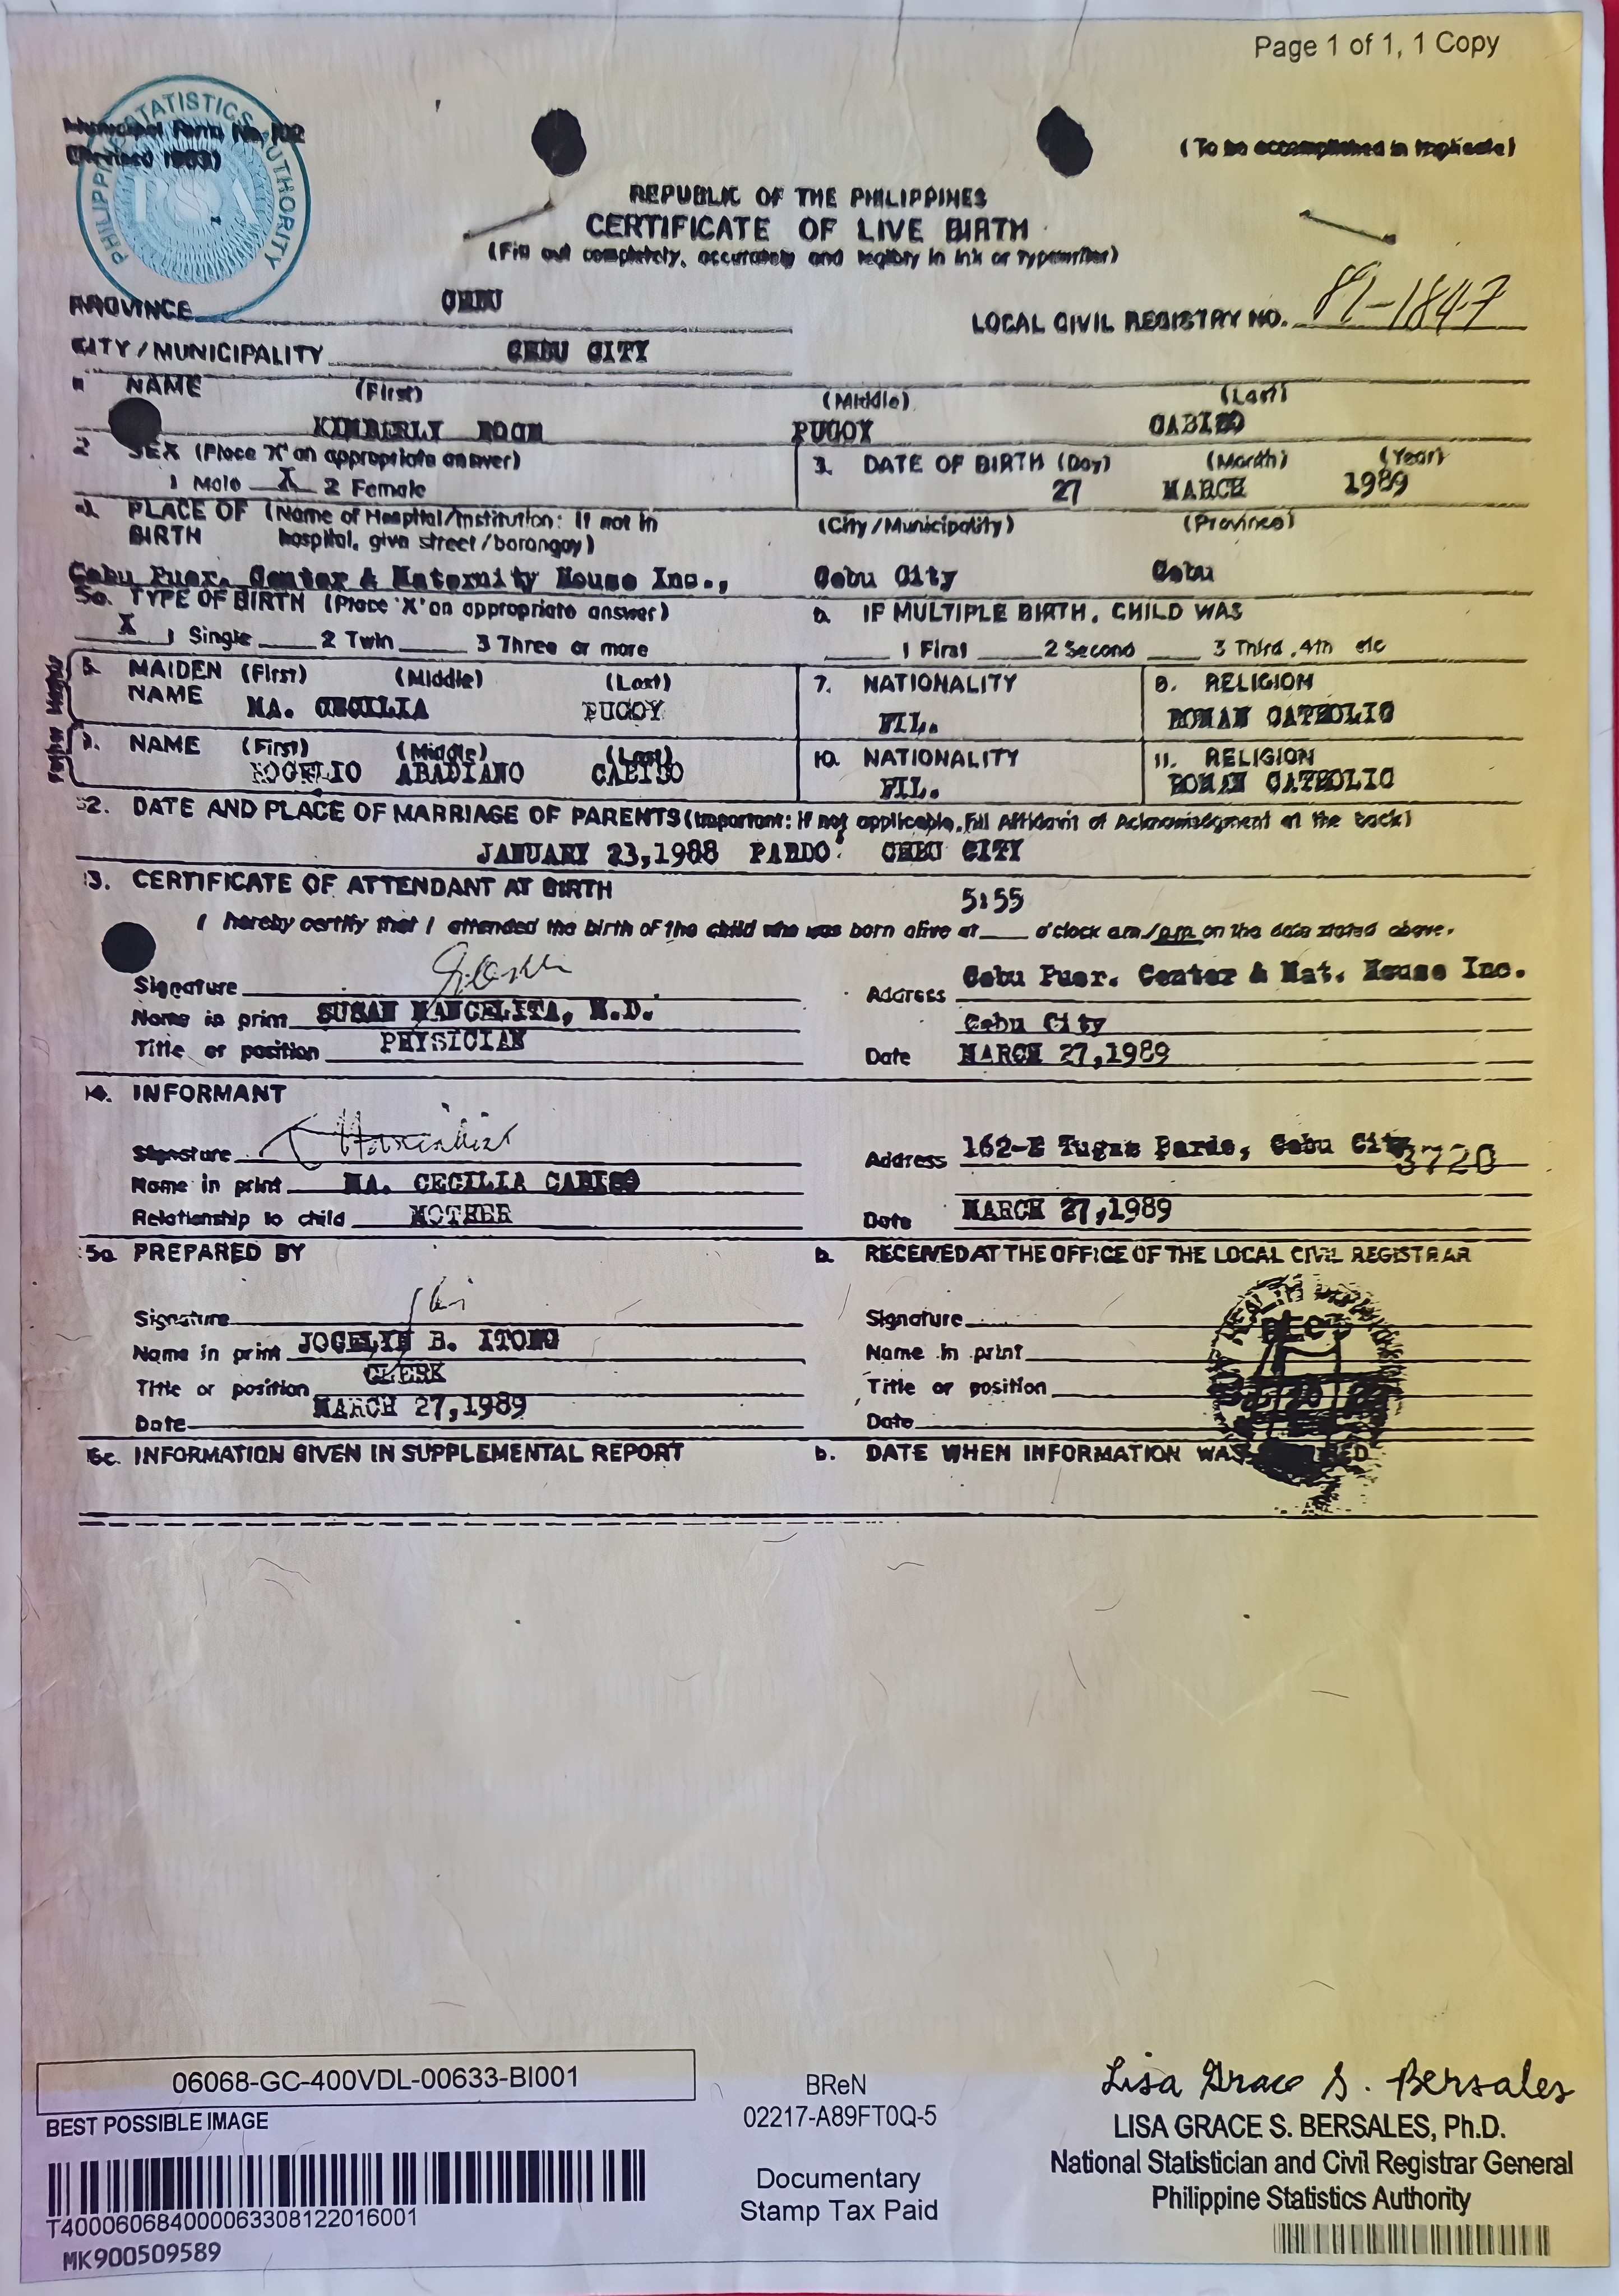 Page 1 of 1, 1 Copy
PHILIPPINE STATISTICS AUTHORITY
PSA
Municipal Form No. 102
(To be accomplished in triplicate)
REPUBLIC OF THE PHILIPPINES
CERTIFICATE OF LIVE BIRTH
(Fill out completely, accurately and legibly in ink or typewriter)
PROVINCE CEBU
LOCAL CIVIL REGISTRY NO.
CITY/MUNICIPALITY CEBU CITY
NAME (First) (Middle) (Last)
KIMBERLY PUGOY CABISO
2 SEX (Place 'X' on appropriate answer) 3. DATE OF BIRTH (Day) (Month) (Year)
1 Male X 2 Female 27 MARCH 1989
PLACE OF (Name of Hospital/Institution: If not in (City/Municipality) (Province)
BIRTH hospital, give street/barangay)
Cebu Puer. Center & Maternity House Inc., Cebu City Cebu
5a. TYPE OF BIRTH (Place 'X' on appropriate answer) b. IF MULTIPLE BIRTH, CHILD WAS
X 1 Single 2 Twin 3 Three or more 1 First 2 Second 3 Third, 4th etc
6. MAIDEN (First) (Middle) (Last) 7. NATIONALITY 8. RELIGION
NAME MA. CECILIA PUGOY FIL. ROMAN CATHOLIC
9. NAME (First) (Middle) (Last) 10. NATIONALITY 11. RELIGION
ROGELIO ABADIANO CABISO FIL. ROMAN CATHOLIC
12. DATE AND PLACE OF MARRIAGE OF PARENTS (Important: If not applicable, fill Affidavit of Acknowledgment at the back)
JANUARY 23,1988 PARDO CEBU CITY
13. CERTIFICATE OF ATTENDANT AT BIRTH 5:55
I hereby certify that I attended the birth of the child who was born alive at o'clock am/pm on the date stated above.
Signature Address Cebu Puer. Center & Mat. House Inc.
Name in print SUSAN MANCELITA, M.D. Cebu City
Title or position PHYSICIAN Date MARCH 27,1989
14. INFORMANT
Signature Address 162-E Tugas Pardo, Cebu City 3720
Name in print MA. CECILIA CABISO
Relationship to child MOTHER Date MARCH 27,1989
5a PREPARED BY b. RECEIVED AT THE OFFICE OF THE LOCAL CIVIL REGISTRAR
Signature Signature
Name in print JOCELYN B. Name in print
Title or position CLERK Title or position
Date MARCH 27,1989 Date
INFORMATION GIVEN IN SUPPLEMENTAL REPORT b. DATE WHEN INFORMATION WAS
06068-GC-400VDL-00633-BI001
BEST POSSIBLE IMAGE
T400060684000063308122016001
MK900509589
BReN
02217-A89FT0Q-5
Documentary
Stamp Tax Paid
Lisa Grace S. Bersales
LISA GRACE S. BERSALES, Ph.D.
National Statistician and Civil Registrar General
Philippine Statistics Authority